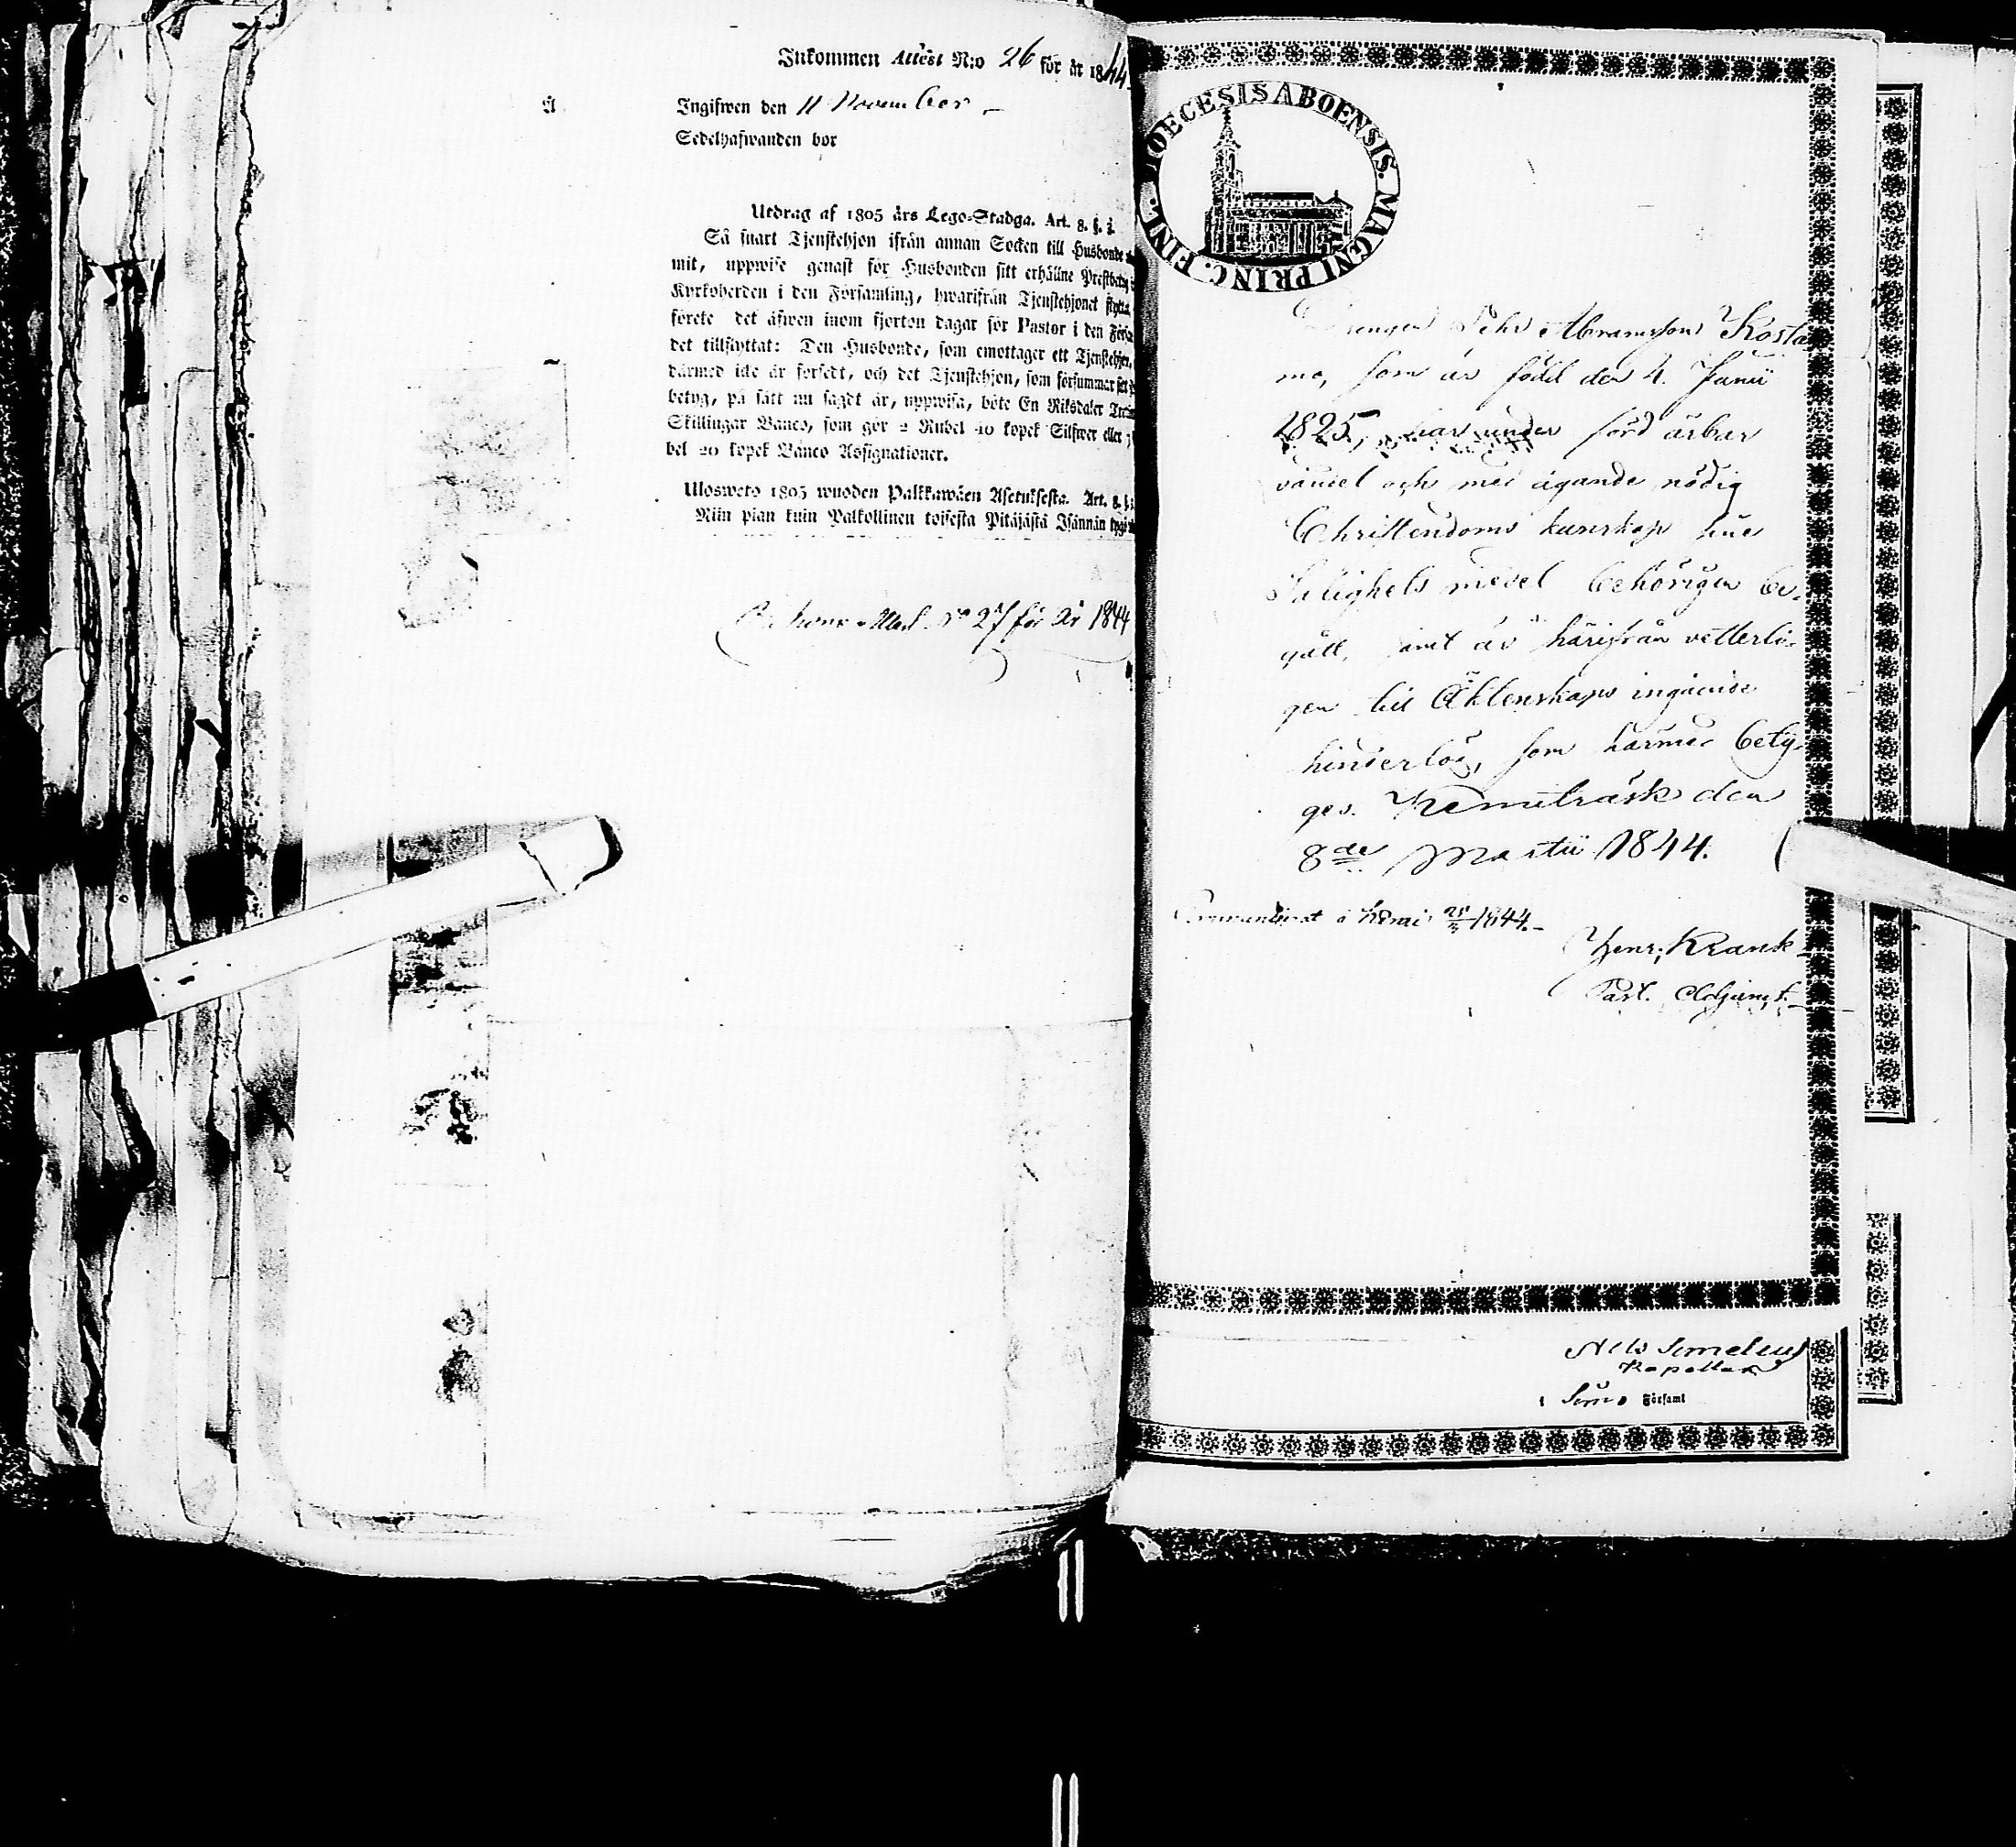 Inkommen Attest N:o 26 för år 1844.
Å
Ingifwen den 11 November
Sedelhafwanden bor
Utdrag af 1805 års Lego-Stadga. Art. 8. §. 3.
Så snart Tjenstehjon ifrån annan Socken till Husbonde
mit, uppwise genast för Husbonden sitt erhållne Prestbetyg
Kyrkoherden i den Församling, hwarifrån Tjenstehjonet flytta
förete det äfwen inom fjorton dagar för Pastor i den Förs
det tillflyttat: Den Husbonde, som emottager ett Tjenstehjon,
därmed icke är försedt, och det Tjenstehjon, som försummar
betyg, på sätt nu sagdt är, uppwisa, böte En Riksdaler
Skillingar Banco, som gör 2 Rubel 40 kopek Silfwer eller
bel 20 kopek Banco Assignationer.
Ulosweto 1805 wuoden Palkkawäen Asetuksesta. Art. 8. §.
Niin pian kuin Palkollinen toisesta Pitäjästä Isännän tygö
No 27 för År 1844
DIOECESIS ABOENSIS. MAGNI PRINC. FINL.
Drengen Pehr Abramsson Kosta
mo, som är född den 4. Junii
1825, har under förd ärbar
vandel och med ägande nödig
Christendoms kunskap sine
Salighets medel behörigen be-
gått, samt är härifrån vetterli-
gen till Äktenskaps ingående
hinderlös, som härmed bety-
ges. Kemiträsk den
8de Martii 1844.
Communicerat i Kemi 1844.
Henr. Krank
Past. Adjunct.
Nils Simelius
Kapellan
i Simo Församl